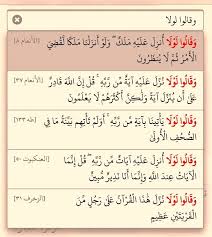 وقالوا لولا
وَقَالُوا لَوْلَا أُنزِلَ عَلَيْهِ مَلَكٌ ۖ وَلَوْ أَنزَلْنَا مَلَكًا لَّقُضِيَ [الأنعام ٨]
الْأَمْرُ ثُمَّ لَا يُنظَرُونَ
وَقَالُوا لَوْلَا نُزِّلَ عَلَيْهِ آيَةٌ مِّن رَّبِّهِ ۚ قُلْ إِنَّ اللَّهَ قَادِرٌ [الأنعام ٣٧]
عَلَىٰ أَن يُنَزِّلَ آيَةً وَلَٰكِنَّ أَكْثَرَهُمْ لَا يَعْلَمُونَ
وَقَالُوا لَوْلَا يَأْتِينَا بِآيَةٍ مِّن رَّبِّهِ ۚ أَوَلَمْ تَأْتِهِم بَيِّنَةُ مَا فِي [طه ١٣٣]
الصُّحُفِ الْأُولَىٰ
وَقَالُوا لَوْلَا أُنزِلَ عَلَيْهِ آيَاتٌ مِّن رَّبِّهِ ۖ قُلْ إِنَّمَا [العنكبوت ٥٠]
الْآيَاتُ عِندَ اللَّهِ وَإِنَّمَا أَنَا نَذِيرٌ مُّبِينٌ
وَقَالُوا لَوْلَا نُزِّلَ هَٰذَا الْقُرْآنُ عَلَىٰ رَجُلٍ مِّنَ [الزخرف ٣١]
الْقَرْيَتَيْنِ عَظِيمٍ